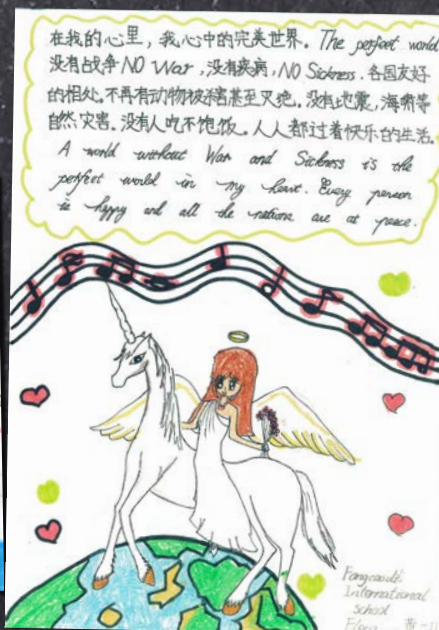 在我的心里，我心中的完美世界. The perfect world
没有战争 NO War，没有疾病，NO Sickness. 各国友好
的相处. 不再有动物被杀害甚至灭绝. 没有地震，海啸等
自然灾害. 没有人吃不饱饭. 人人都过着快乐的生活.
A world without War and Sickness is the
perfect world in my heart. Every person
is happy and all the nations are at peace.
International
school